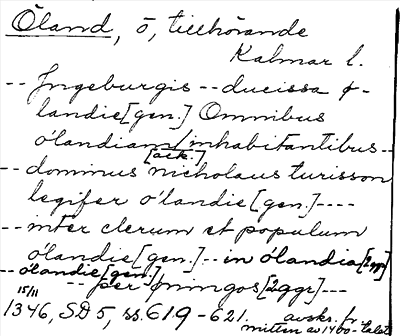 Öland, ö, tillhörande
Kalmar l.
-- Ingeburgis -- ducissa ø-
landie [gen.] Omnibus
ólandiam [ack.] inhabitantibus --
-- dominus nicholaus turisson
legifer ólandie [gen.] ----
-- inter clerum et populum
ólandie [gen.] -- in ólandia [2ggr]
-- ólandie [gen.] -- per øningos [2ggr] --
15/11 1346, SD 5, ss. 619-621. avskr. fr.
mitten av 1400-talet